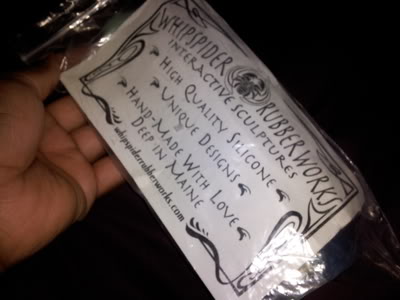 WHIPSPIDER RUBBERWORKS
INTERACTIVE SCULPTURES
HIGH QUALITY SILICONE
UNIQUE DESIGNS
HAND-MADE WITH LOVE
DEEP IN MAINE
whipspiderrubberworks.com